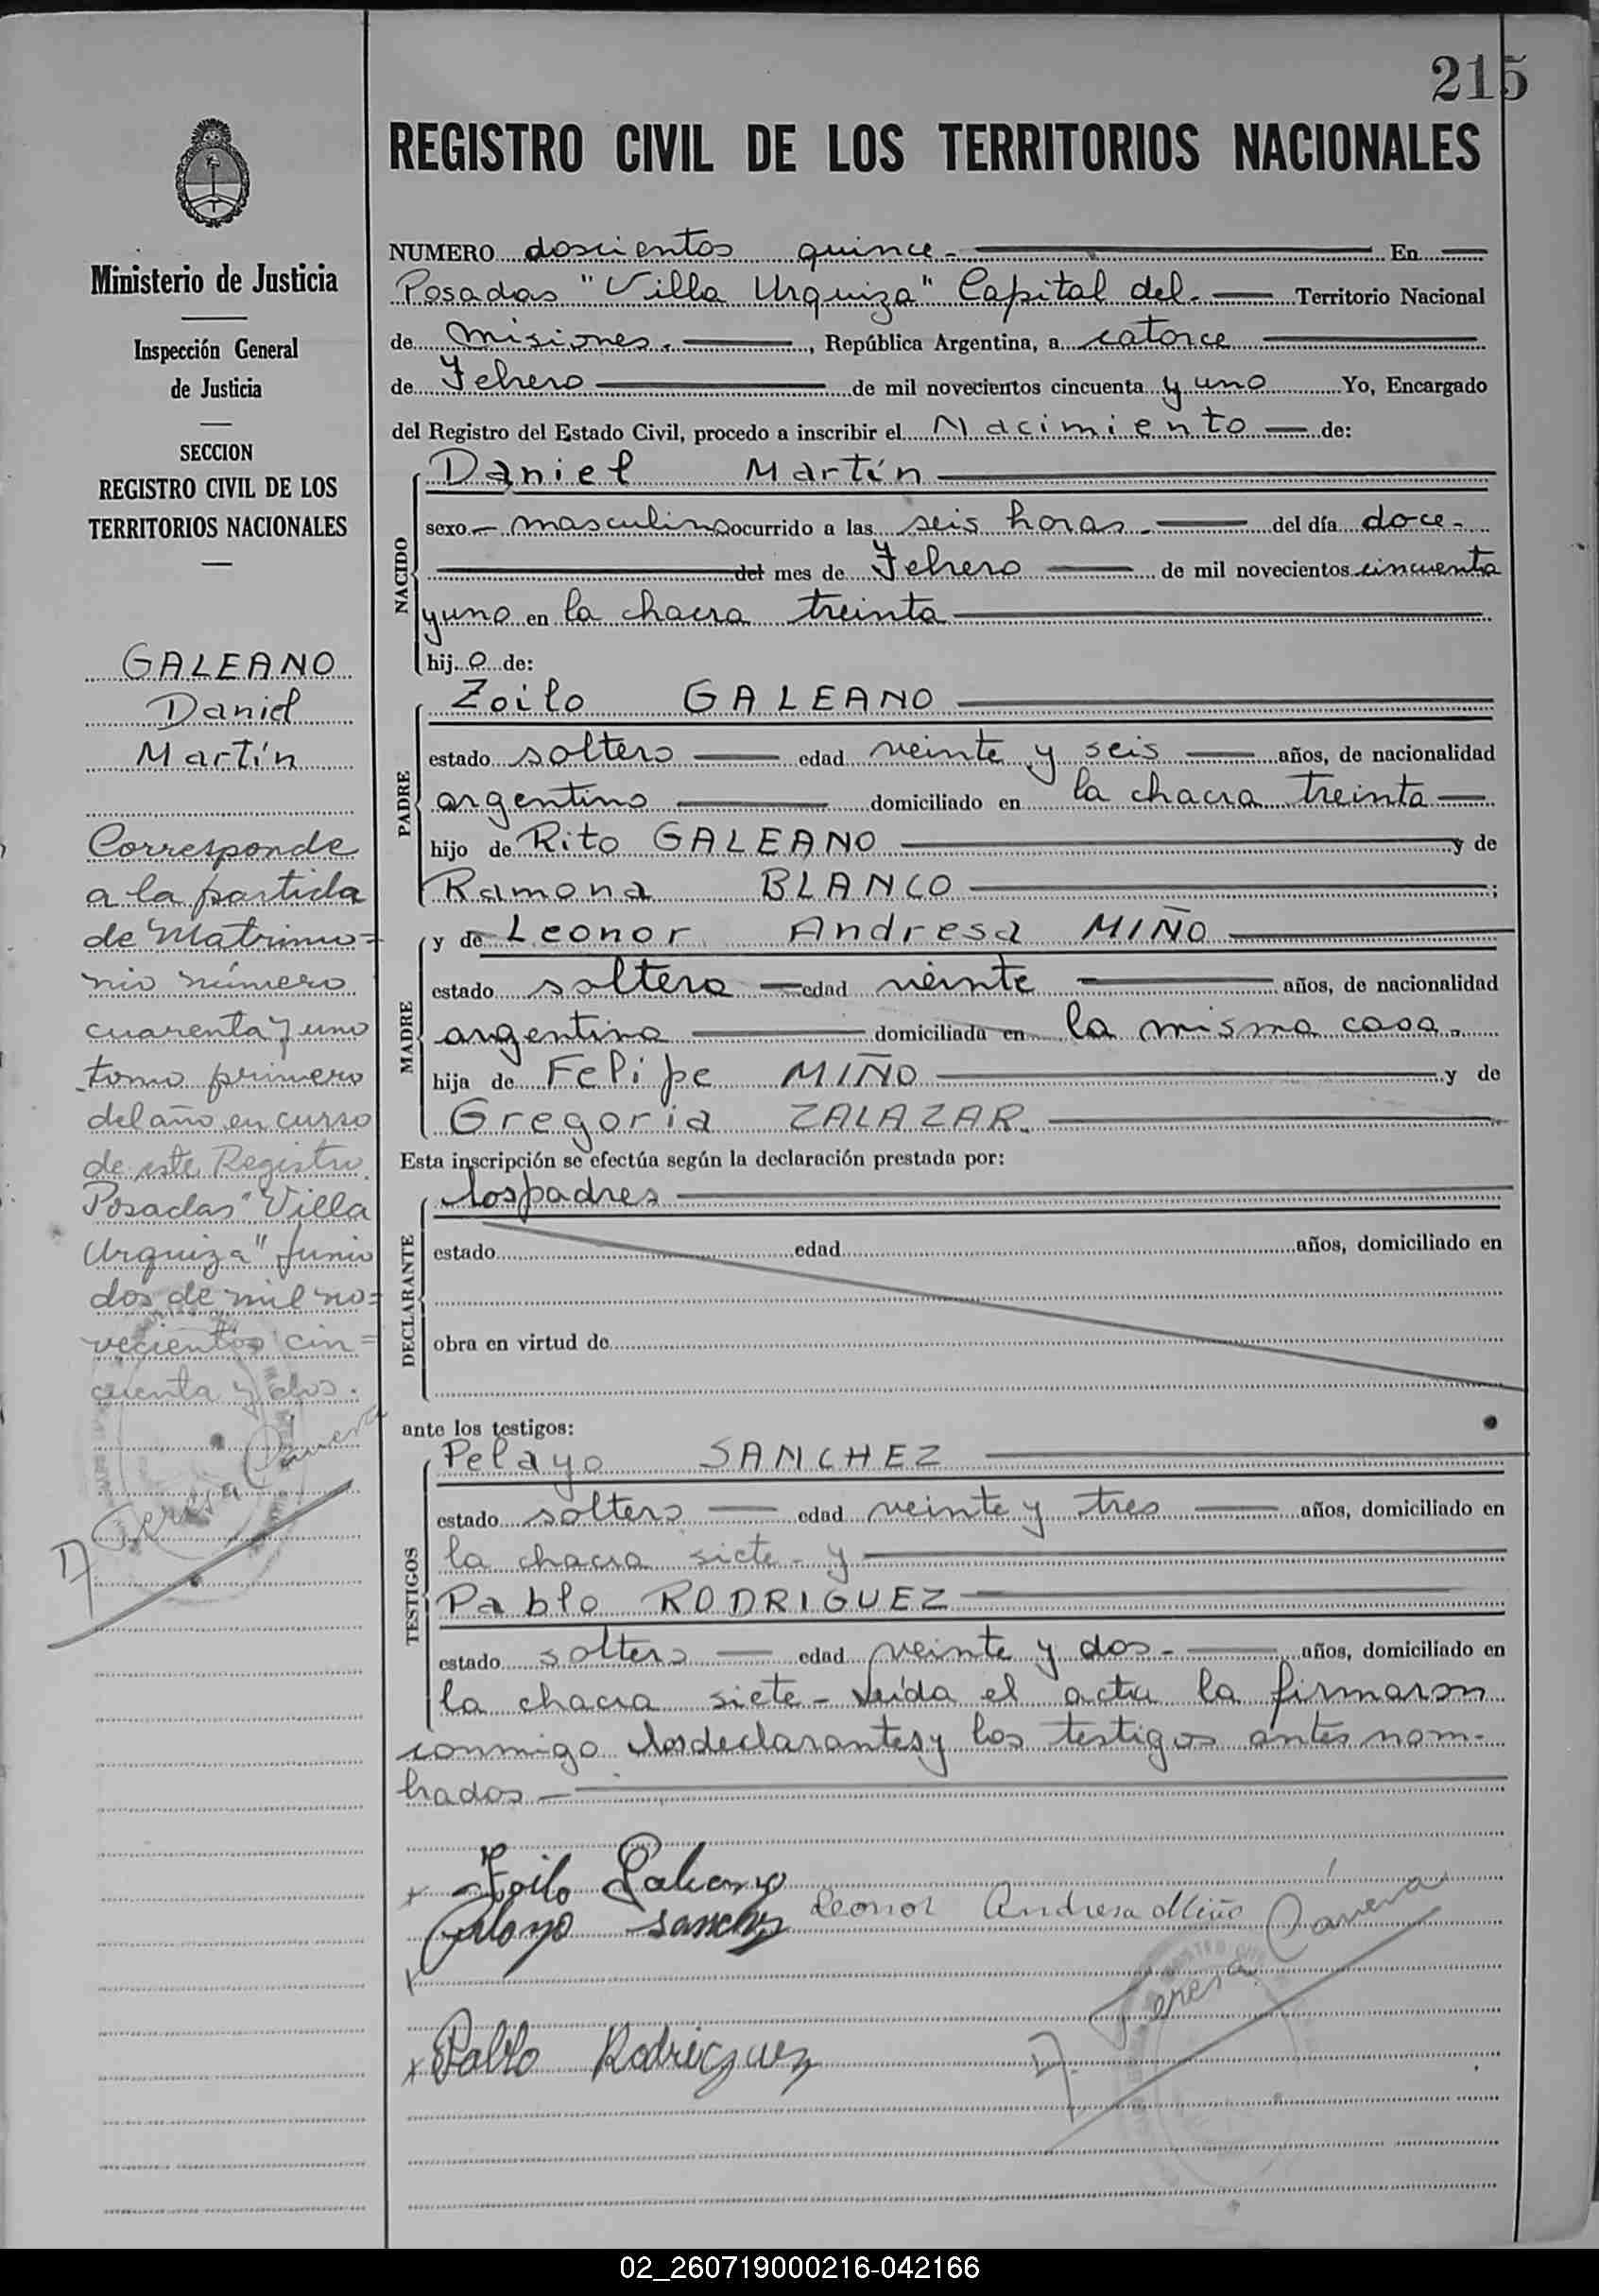 215
REGISTRO CIVIL DE LOS TERRITORIOS NACIONALES
Ministerio de Justicia
Inspección General
de Justicia
SECCION
REGISTRO CIVIL DE LOS
TERRITORIOS NACIONALES
GALEANO
Daniel
Martín
Corresponde
a la partida
de Matrimo=
nio número
cuarenta y uno
tomo primero
del año en curso
de este Registro
Posadas "Villa
Urquiza" Junio
dos de mil no=
vecientos cin=
cuenta y dos.
Teresa
NUMERO doscientos quince - En
Posadas "Villa Urquiza" Capital del. Territorio Nacional
de Misiones. , República Argentina, a catorce
de Febrero de mil novecientos cincuenta y uno Yo, Encargado
del Registro del Estado Civil, procedo a inscribir el Nacimiento de:
NACIDO
Daniel Martín
sexo masculino ocurrido a las seis horas del día doce
del mes de Febrero de mil novecientos cincuenta
y uno en la chacra treinta
hijo de:
PADRE
Zoilo GALEANO
estado soltero edad veinte y seis años, de nacionalidad
argentino domiciliado en la chacra treinta
hijo de Rito GALEANO y de
Ramona BLANCO ;
MADRE
y de Leonor Andresa MIÑO
estado soltera edad veinte años, de nacionalidad
argentina domiciliada en la misma casa.
hija de Felipe MIÑO y de
Gregoria ZALAZAR.
Esta inscripción se efectúa según la declaración prestada por:
DECLARANTE
los padres
estado edad años, domiciliado en
obra en virtud de
ante los testigos:
TESTIGOS
Pelayo SANCHEZ
estado soltero edad veinte y tres años, domiciliado en
la chacra siete - y
Pablo RODRIGUEZ
estado soltero edad veinte y dos - años, domiciliado en
la chacra siete - Leída el acta la firmaron
conmigo los declarantes y los testigos antes nom-
brados.-
Zoilo Galeano
Leonor Andresa Miño
Pelayo Sanchez
Teresa
Pablo Rodriguez
02_260719000216-042166